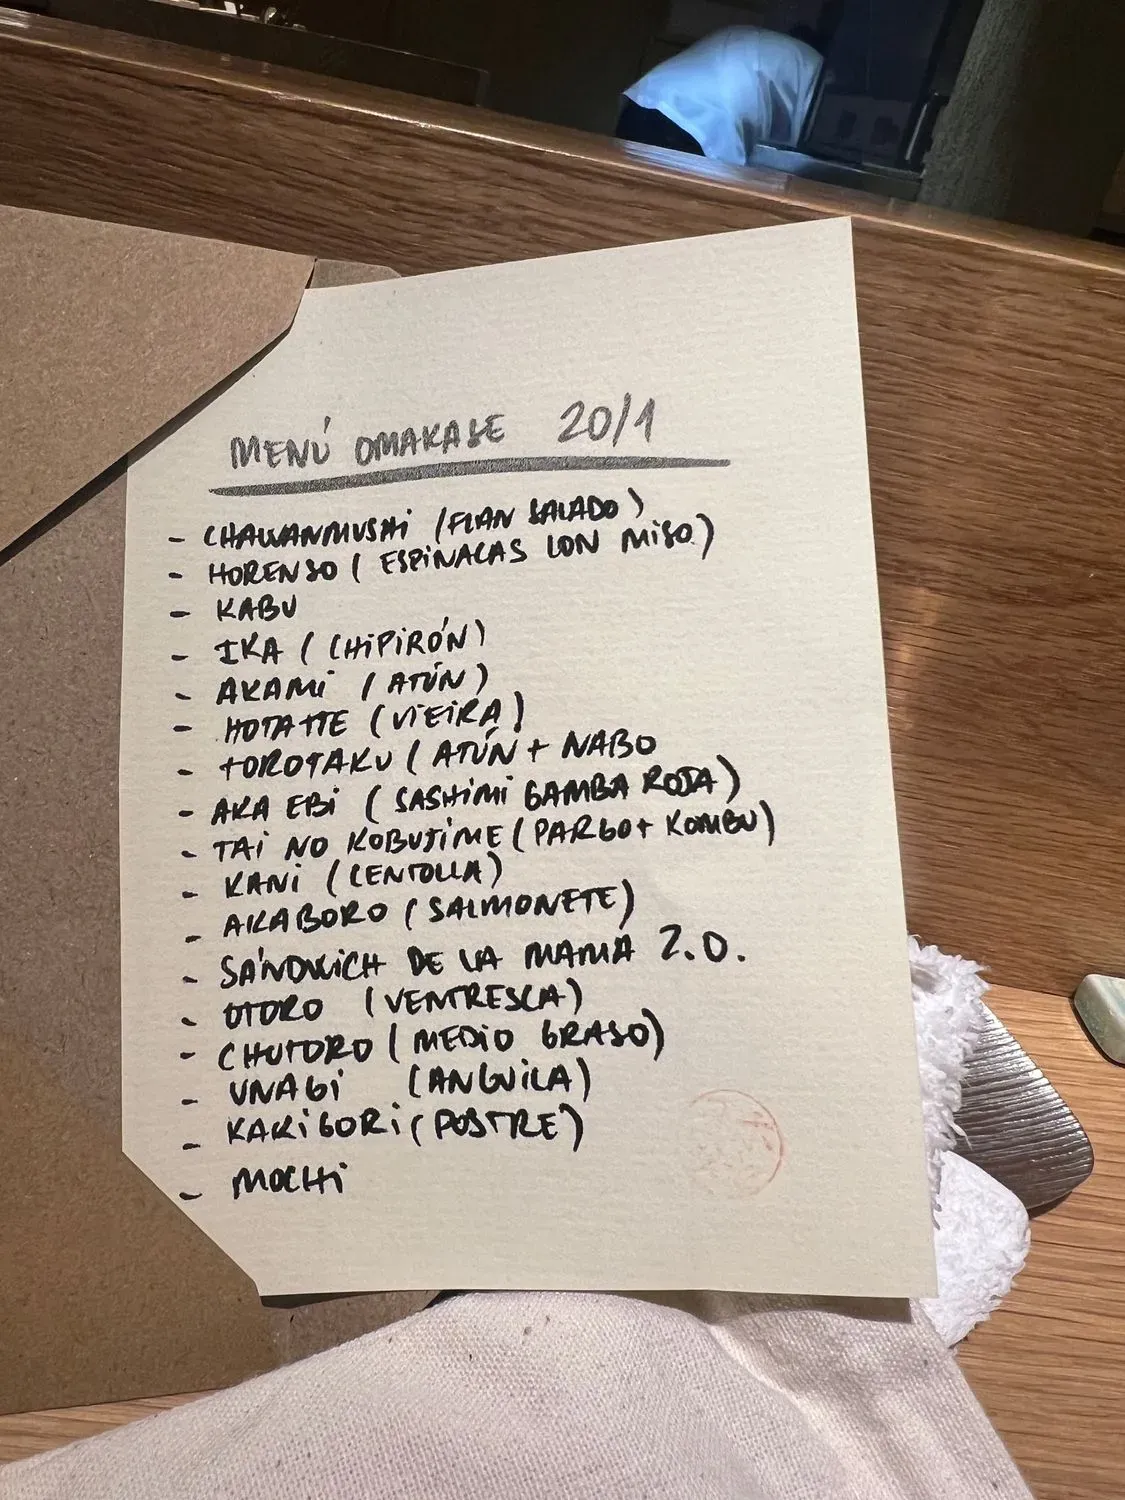 MENÚ OMAKASE 20/1
- CHAWANMUSHI (FLAN SALADO)
- HORENSO (ESPINACAS CON MISO)
- KABU
- IKA (CHIPIRÓN)
- AKAMI (ATÚN)
- HOTATTE (VIEIRA)
- TOROTAKU (ATÚN + NABO
- AKA EBI (SASHIMI GAMBA ROJA)
- TAI NO KOBUJIME (PARGO + KOMBU)
- KANI (CENTOLLA)
- AKABORO (SALMONETE)
- SÁNDWICH DE LA MAMA 2.0.
- OTORO (VENTRESCA)
- CHUTORO (MEDIO GRASO)
- UNAGI (ANGUILA)
- KAKIGORI (POSTRE)
- MOCHI